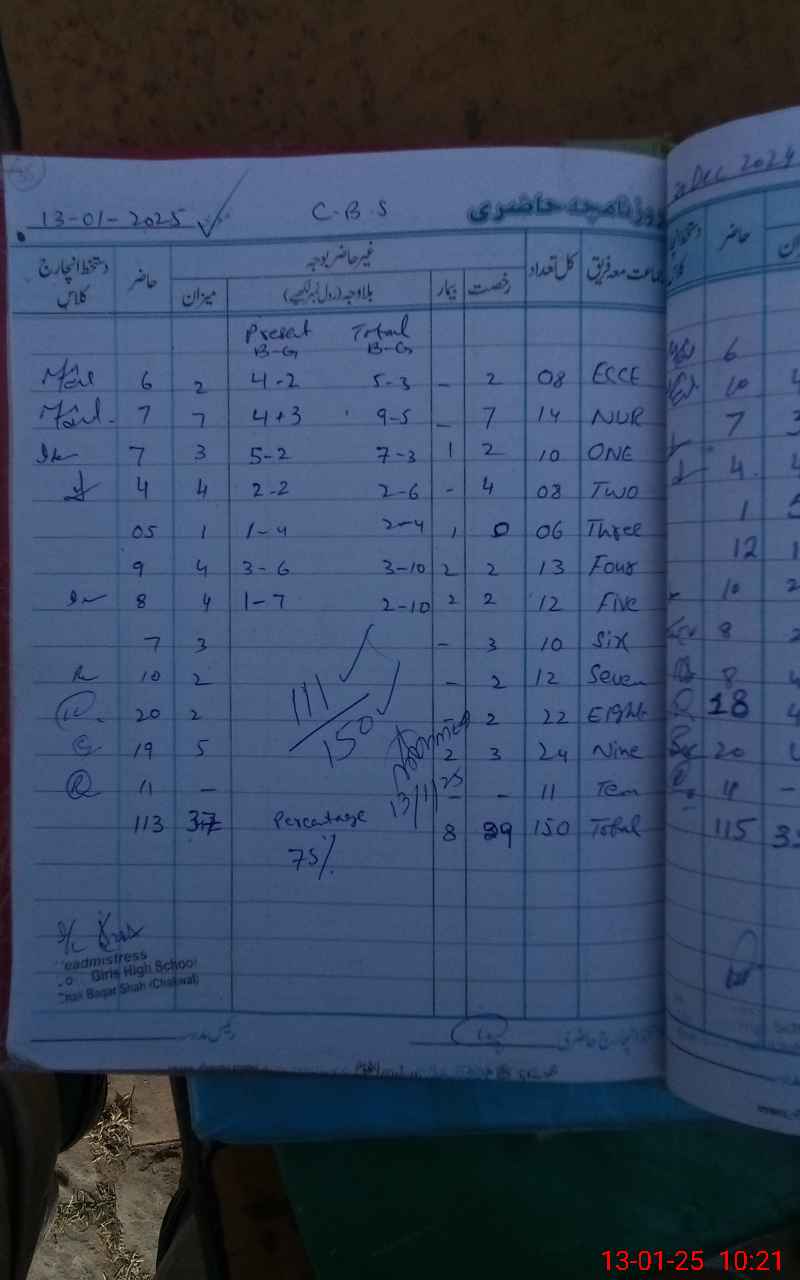 13-01-2025 C-B-S روزنامچہ حاضری
دستخط انچارج کلاس حاضر غیر حاضر بوجہ کل تعداد جماعت معہ فریق
میزان بلاوجہ (رول نمبر لکھیے) بیمار رخصت
Present Total
B-G B-G
6 2 4-2 5-3 - 2 08 ECCE
7 7 4+3 9-5 - 7 14 NUR
7 3 5-2 7-3 1 2 10 ONE
4 4 2-2 2-6 - 4 08 Two
05 1 1-4 2-4 1 0 06 Three
9 4 3-6 3-10 2 2 13 Four
8 4 1-7 2-10 2 2 12 Five
7 3 - 3 10 Six
10 2 - 2 12 Seven
20 2 2 22 Eight
19 5 2 3 24 Nine
11 - - - 11 Ten
113 37 8 29 150 Total
111/150
13/1/25
Percentage
75%
eadmistress
Girls High School
Chak Baqar Shah (Chakwal)
رئیس مدرسہ
انچارج حاضری
Dec 2024
حاضر
6
10
7
4
1
12
10
8
8
18
20
4
115
13-01-25 10:21